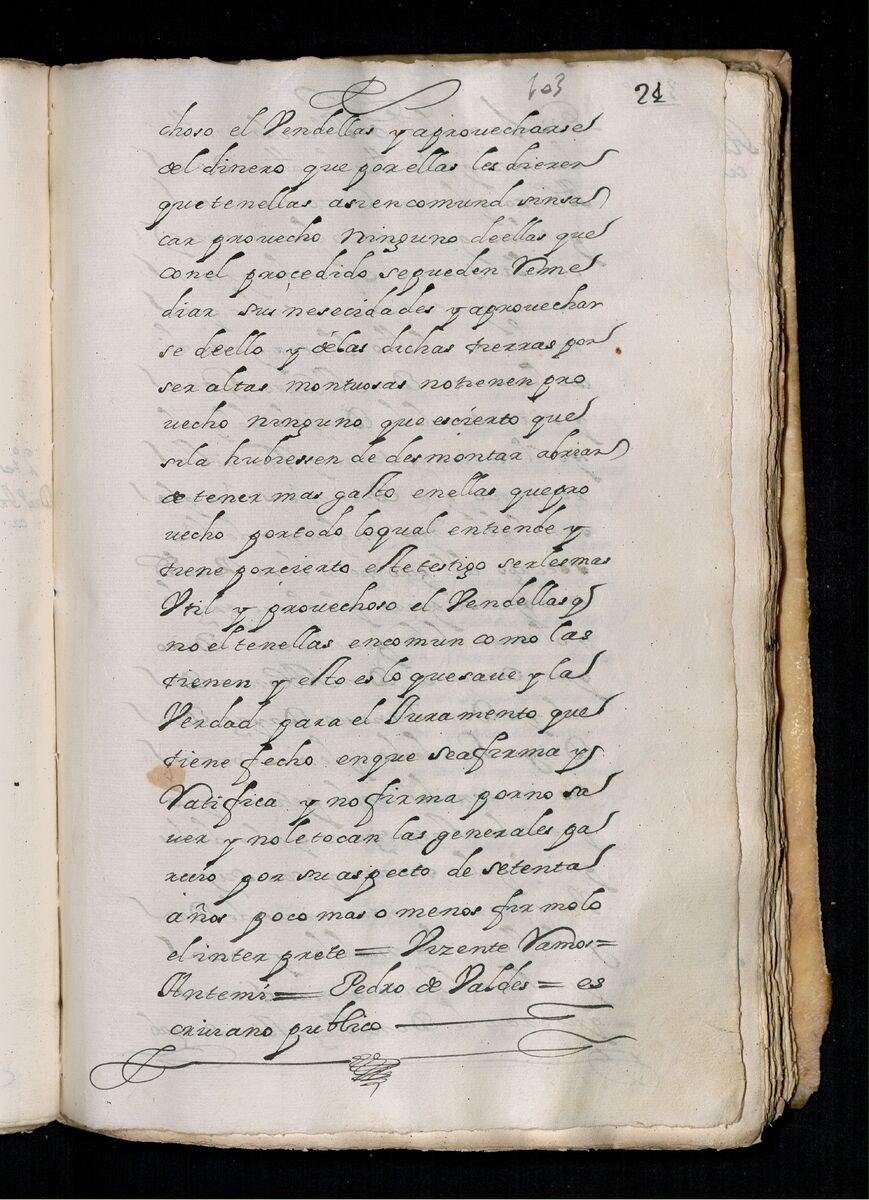 103
21
choso el Vendellas y aprovecharse
del dinero que por ellas les dieren
que tenellas asi en comund sin sa
car provecho ninguno de ellas que
con el procedido se pueden Reme
diar sus nesecidades y aprovechar
se de ello y de las dichas tierras por
ser altas montuosas no tienen pro
vecho ninguno que es cierto que
si la hubiessen de desmontar abrian
de tener mas gasto en ellas que pro
vecho por todo lo qual entiende y
tiene por cierto este testigo serles mas
Util y provechoso el Vendellas q
no el tenellas en comun como las
tienen y esto es lo que save y la
Verdad para el Juramento que
tiene fecho en que se afirma y
Ratifica y no firma por no sa
ver y no le tocan las generales pa
recio por su aspecto de setenta
años poco mas o menos firmolo
el interprete = Vizente Ramos =
Antemi = Pedro de Valdes = es
crivano publico